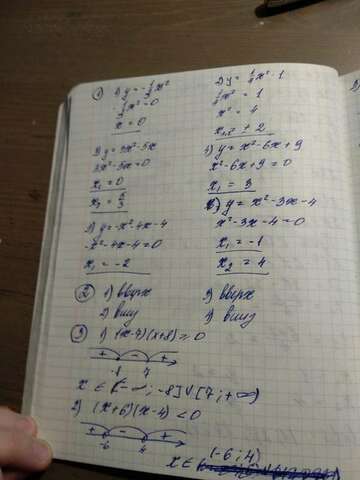 ① 1) y = -½x²
-½x² = 0
x = 0
2) y = ¼x² - 1
¼x² = 1
x² = 4
x₁,₂ ± 2
3) y = 3x² - 5x
3x² - 5x = 0
x₁ = 0
x₂ = 5/3
4) y = x² - 6x + 9
x² - 6x + 9 = 0
x₁ = 3
5) y = -x² - 4x - 4
-x² - 4x - 4 = 0
x₁ = -2
6) y = x² - 3x - 4
x² - 3x - 4 = 0
x₁ = -1
x₂ = 4
② 1) вверх
2) вниз
3) вверх
4) вниз
③ 1) (x-7)(x+8) ≥ 0
+ - +
-8 7
x ∈ (-∞; -8] ∪ [7; +∞)
2) (x+6)(x-4) < 0
+ - +
-6 4
x ∈ (-6; 4)